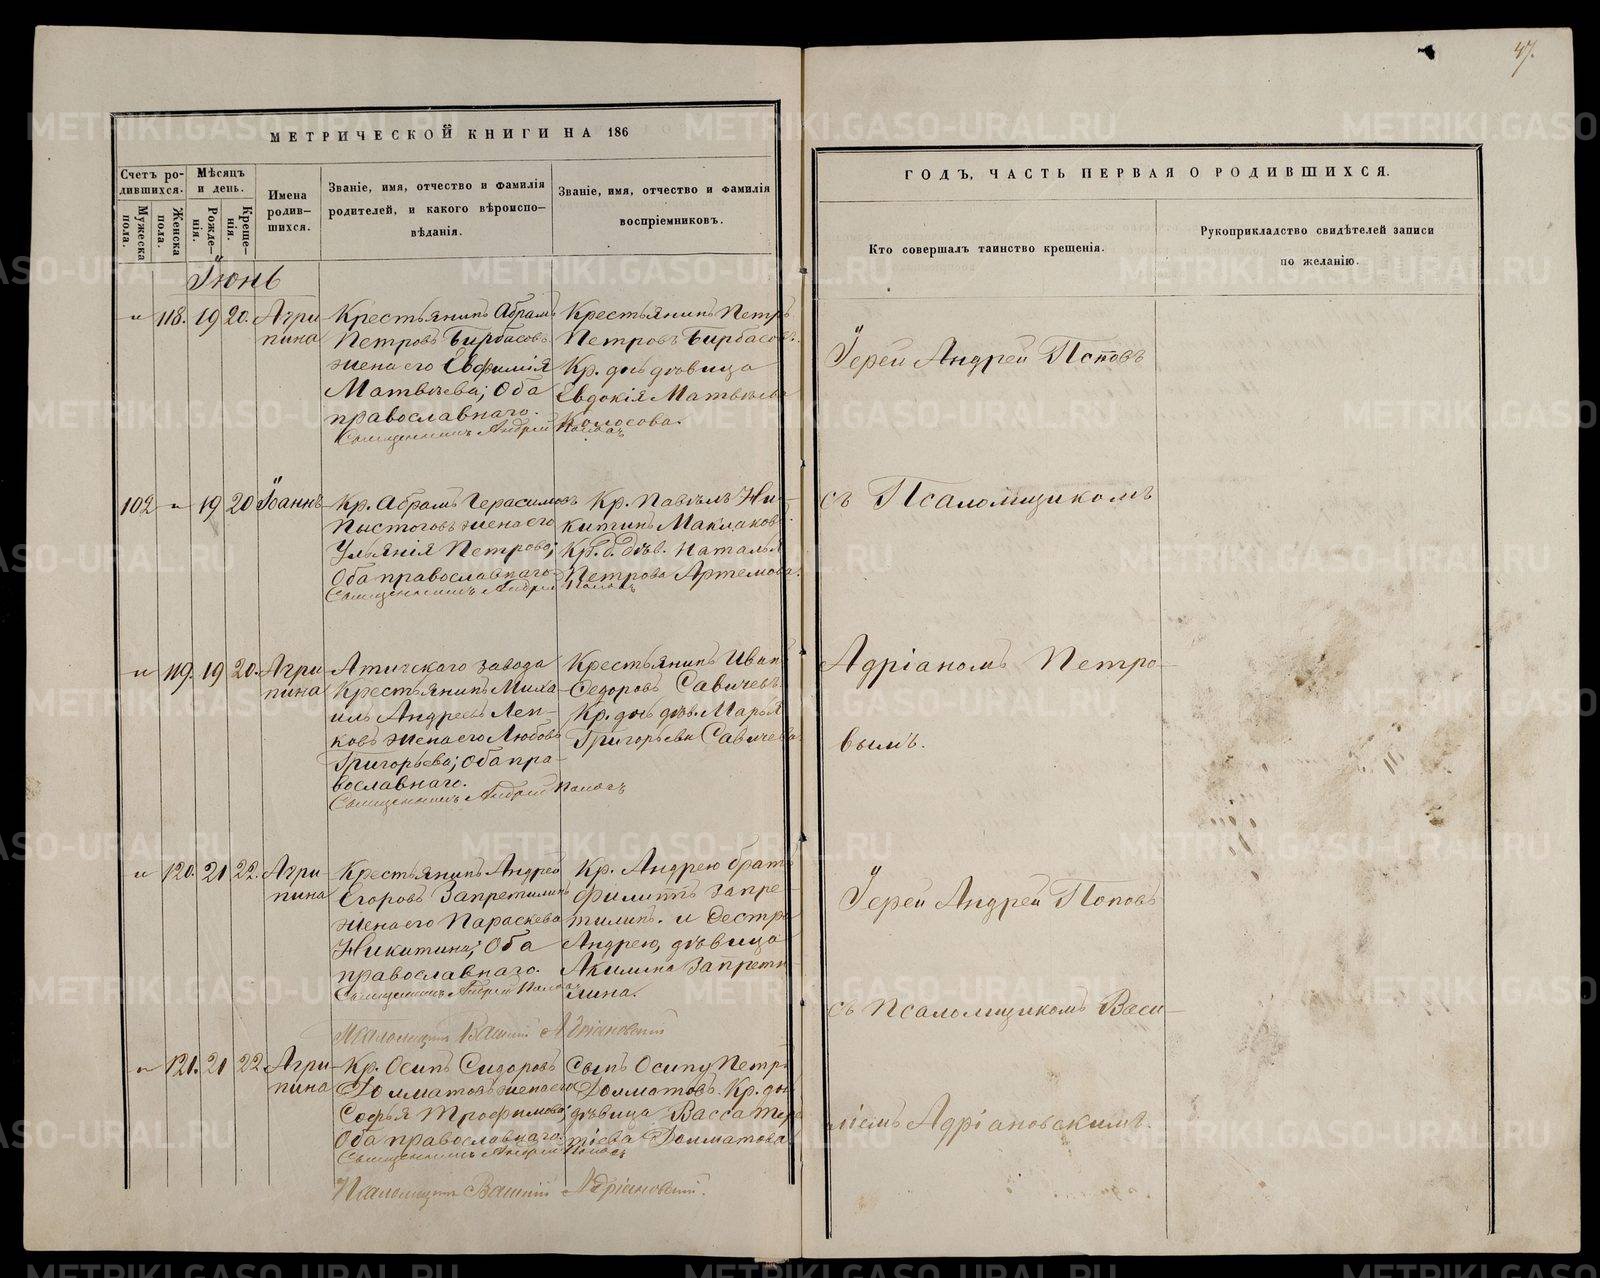 47.
МЕТРИЧЕСКОЙ КНИГИ НА 186
ГОДЪ, ЧАСТЬ ПЕРВАЯ О РОДИВШИХСЯ.
Счетъ ро-
дившихся.
Мужеска
пола.
Женска
пола.
Мѣсяцъ
и день.
Рожде-
нія.
Креще-
нія.
Имена
родив-
шихся.
Званіе, имя, отчество и фамилія
родителей, и какого вѣроиспо-
вѣданія.
Званіе, имя, отчество и фамилія
воспріемниковъ.
Кто совершалъ таинство крещенія.
Рукоприкладство свидѣтелей записи
по желанію.
Іюнь
" 118. 19 20. Агри
пина
Крестьянинъ Абрамъ
Петровъ Бирбасовъ
жена его Евфимія
Матвѣева; Оба
православнаго.
Священникъ Андрей Поповъ
Крестьянинъ Петръ
Петровъ Бирбасовъ.
Кр. дочь дѣвица
Евдокія Матвѣева
Колосова.
Іерей Андрей Поповъ
102 " 19 20 Іоаннъ
Кр. Абрамъ Герасимовъ
Пыстоговъ жена его
Ульянія Петрова;
Оба православнаго.
Священникъ Андрей Поповъ
Кр. Павелъ Ни-
китинъ Маклаковъ.
Кр. д. дѣв. Наталья
Петрова Артемова.
съ Псаломщикомъ
" 119. 19 20. Агри
пина
Атигскаго завода
Крестьянинъ Миха-
илъ Андреевъ Леп-
ковъ жена его Любовь
Григорьева; Оба пра-
вославнаго.
Священникъ Андрей Поповъ
Крестьянинъ Иванъ
Федоровъ Савичевъ.
Кр. дочь дѣв. Марья
Григорьева Савичева
Адріаномъ Петро-
вымъ.
" 120. 21 22. Агри
пина
Крестьянинъ Андрей
Егоровъ Запретилинъ
жена его Параскева
Никитина; Оба
православнаго.
Священникъ Андрей Поповъ
Псаломщикъ Василій Адріановскій
Кр. Андрею братъ
Филиппъ Запре-
тилинъ. и Сестра
Андрею, дѣвица
Акилина Запрети-
лина.
Іерей Андрей Поповъ
съ псаломщикомъ Васи-
" 121. 21 22 Агри-
пина
Кр. Осипъ Сидоровъ
Долматовъ жена его
Софья Трофимова;
Оба православнаго.
Священникъ Андрей Поповъ
Псаломщикъ Василій Адріановскій.
Сынъ Осипу Петръ
Долматовъ. Кр. дочь
дѣвица Васса
Долматова
ліемъ Адріановскимъ.
METRIKI.GASO-URAL.RU